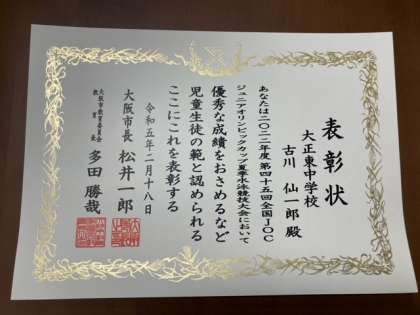 表彰状
大正東中学校
古川 仙一郎 殿
あなたは二〇二二年度第四十五回全国JOC
ジュニアオリンピックカップ夏季水泳競技大会において
優秀な成績をおさめるなど
児童生徒の範と認められる
ここにこれを表彰する
令和五年二月十八日
大阪市長 松井一郎
大阪市教育委員会
教育長 多田勝哉